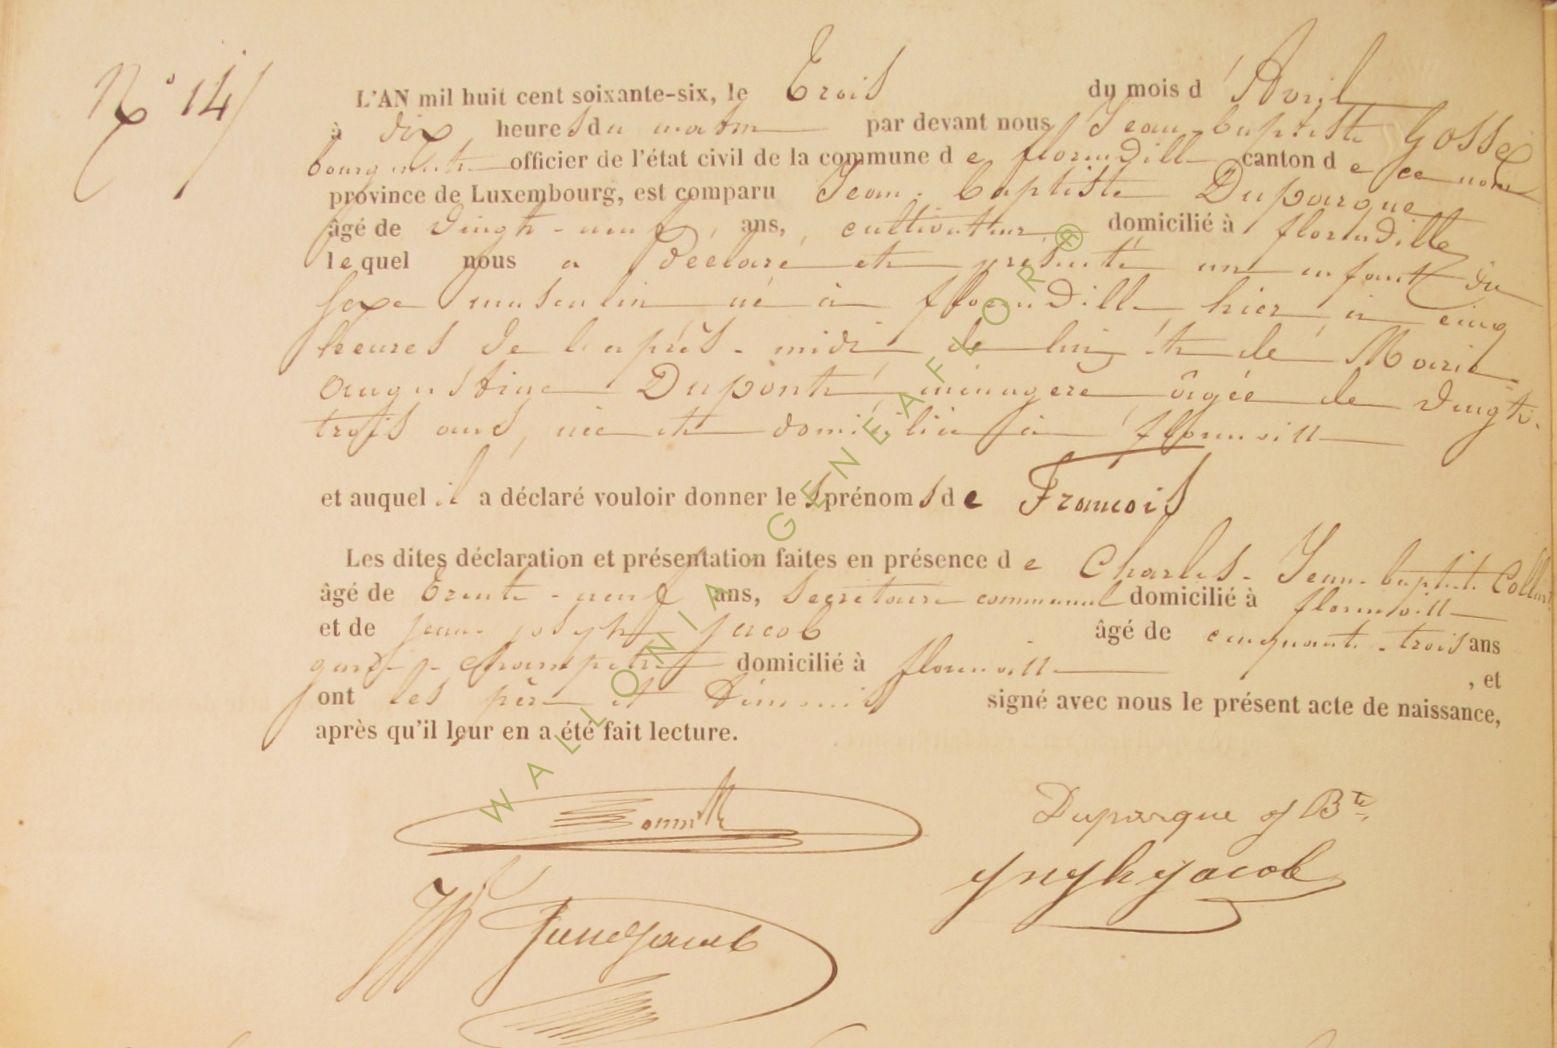 N° 14
L'AN mil huit cent soixante-six, le Trois du mois d'Avril
à dix heures du matin par devant nous Jean-baptiste Gosse
bourgmestre officier de l'état civil de la commune de florenville canton de ce nom
province de Luxembourg, est comparu Jean-baptiste Duparque
âgé de vingt-neuf ans, cultivateur domicilié à florenville
lequel nous a déclaré et présenté un enfant du
sexe masculin né à florenville, hier, à cinq
heures de l'après-midi de lui et de Marie
augustine Dupont, ménagère âgée de vingt-
trois ans, née et domiciliée à florenville
et auquel il a déclaré vouloir donner les prénoms de François
Les dites déclaration et présentation faites en présence de Charles-Jean-baptiste
âgé de Trente-neuf ans, secrétaire communal domicilié à florenville
et de jean-joseph jacob âgé de cinquante-trois ans
garde-champêtre domicilié à florenville , et
ont les père et témoins signé avec nous le présent acte de naissance,
après qu'il leur en a été fait lecture.
Duparque J Bte
WALLONIA - GENEAFLOR ®